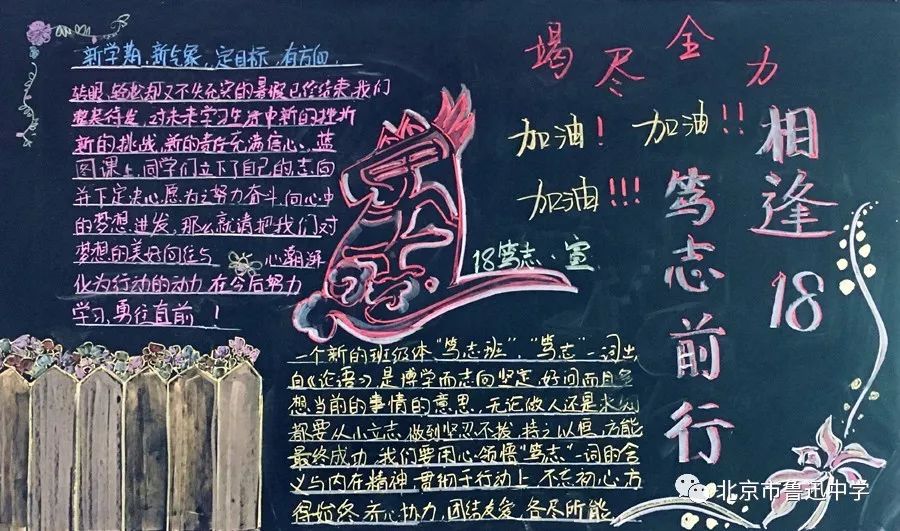 新学期，新气象，定目标，有方向
转眼，轻松却又不失充实的暑假已经结束，我们
整装待发，对未来学习生活中新的挫折
新的挑战，新的责任充满信心。蓝
图课上，同学们立下了自己的志向
并下定决心愿为之努力奋斗，向心中
的梦想进发，那么就请把我们对
梦想的美好向往与 心潮澎
化为行动的动力，在今后努力
学习，勇往直前！
竭尽全力
加油！加油！！
加油！！！
相逢18
笃志前行
18笃志·宣
一个新的班级体“笃志班”，“笃志”一词出
自《论语》，是博学而志向坚定，好问而且多
想当前的事情的意思，无论做人还是求知
都要从小立志，做到坚忍不拔，持之以恒，方能
最终成功，我们要用心领悟“笃志”一词的含
义与内在精神，贯彻于行动上，不忘初心，方
得始终，齐心协力，团结友爱，各尽所能
北京市鲁迅中学